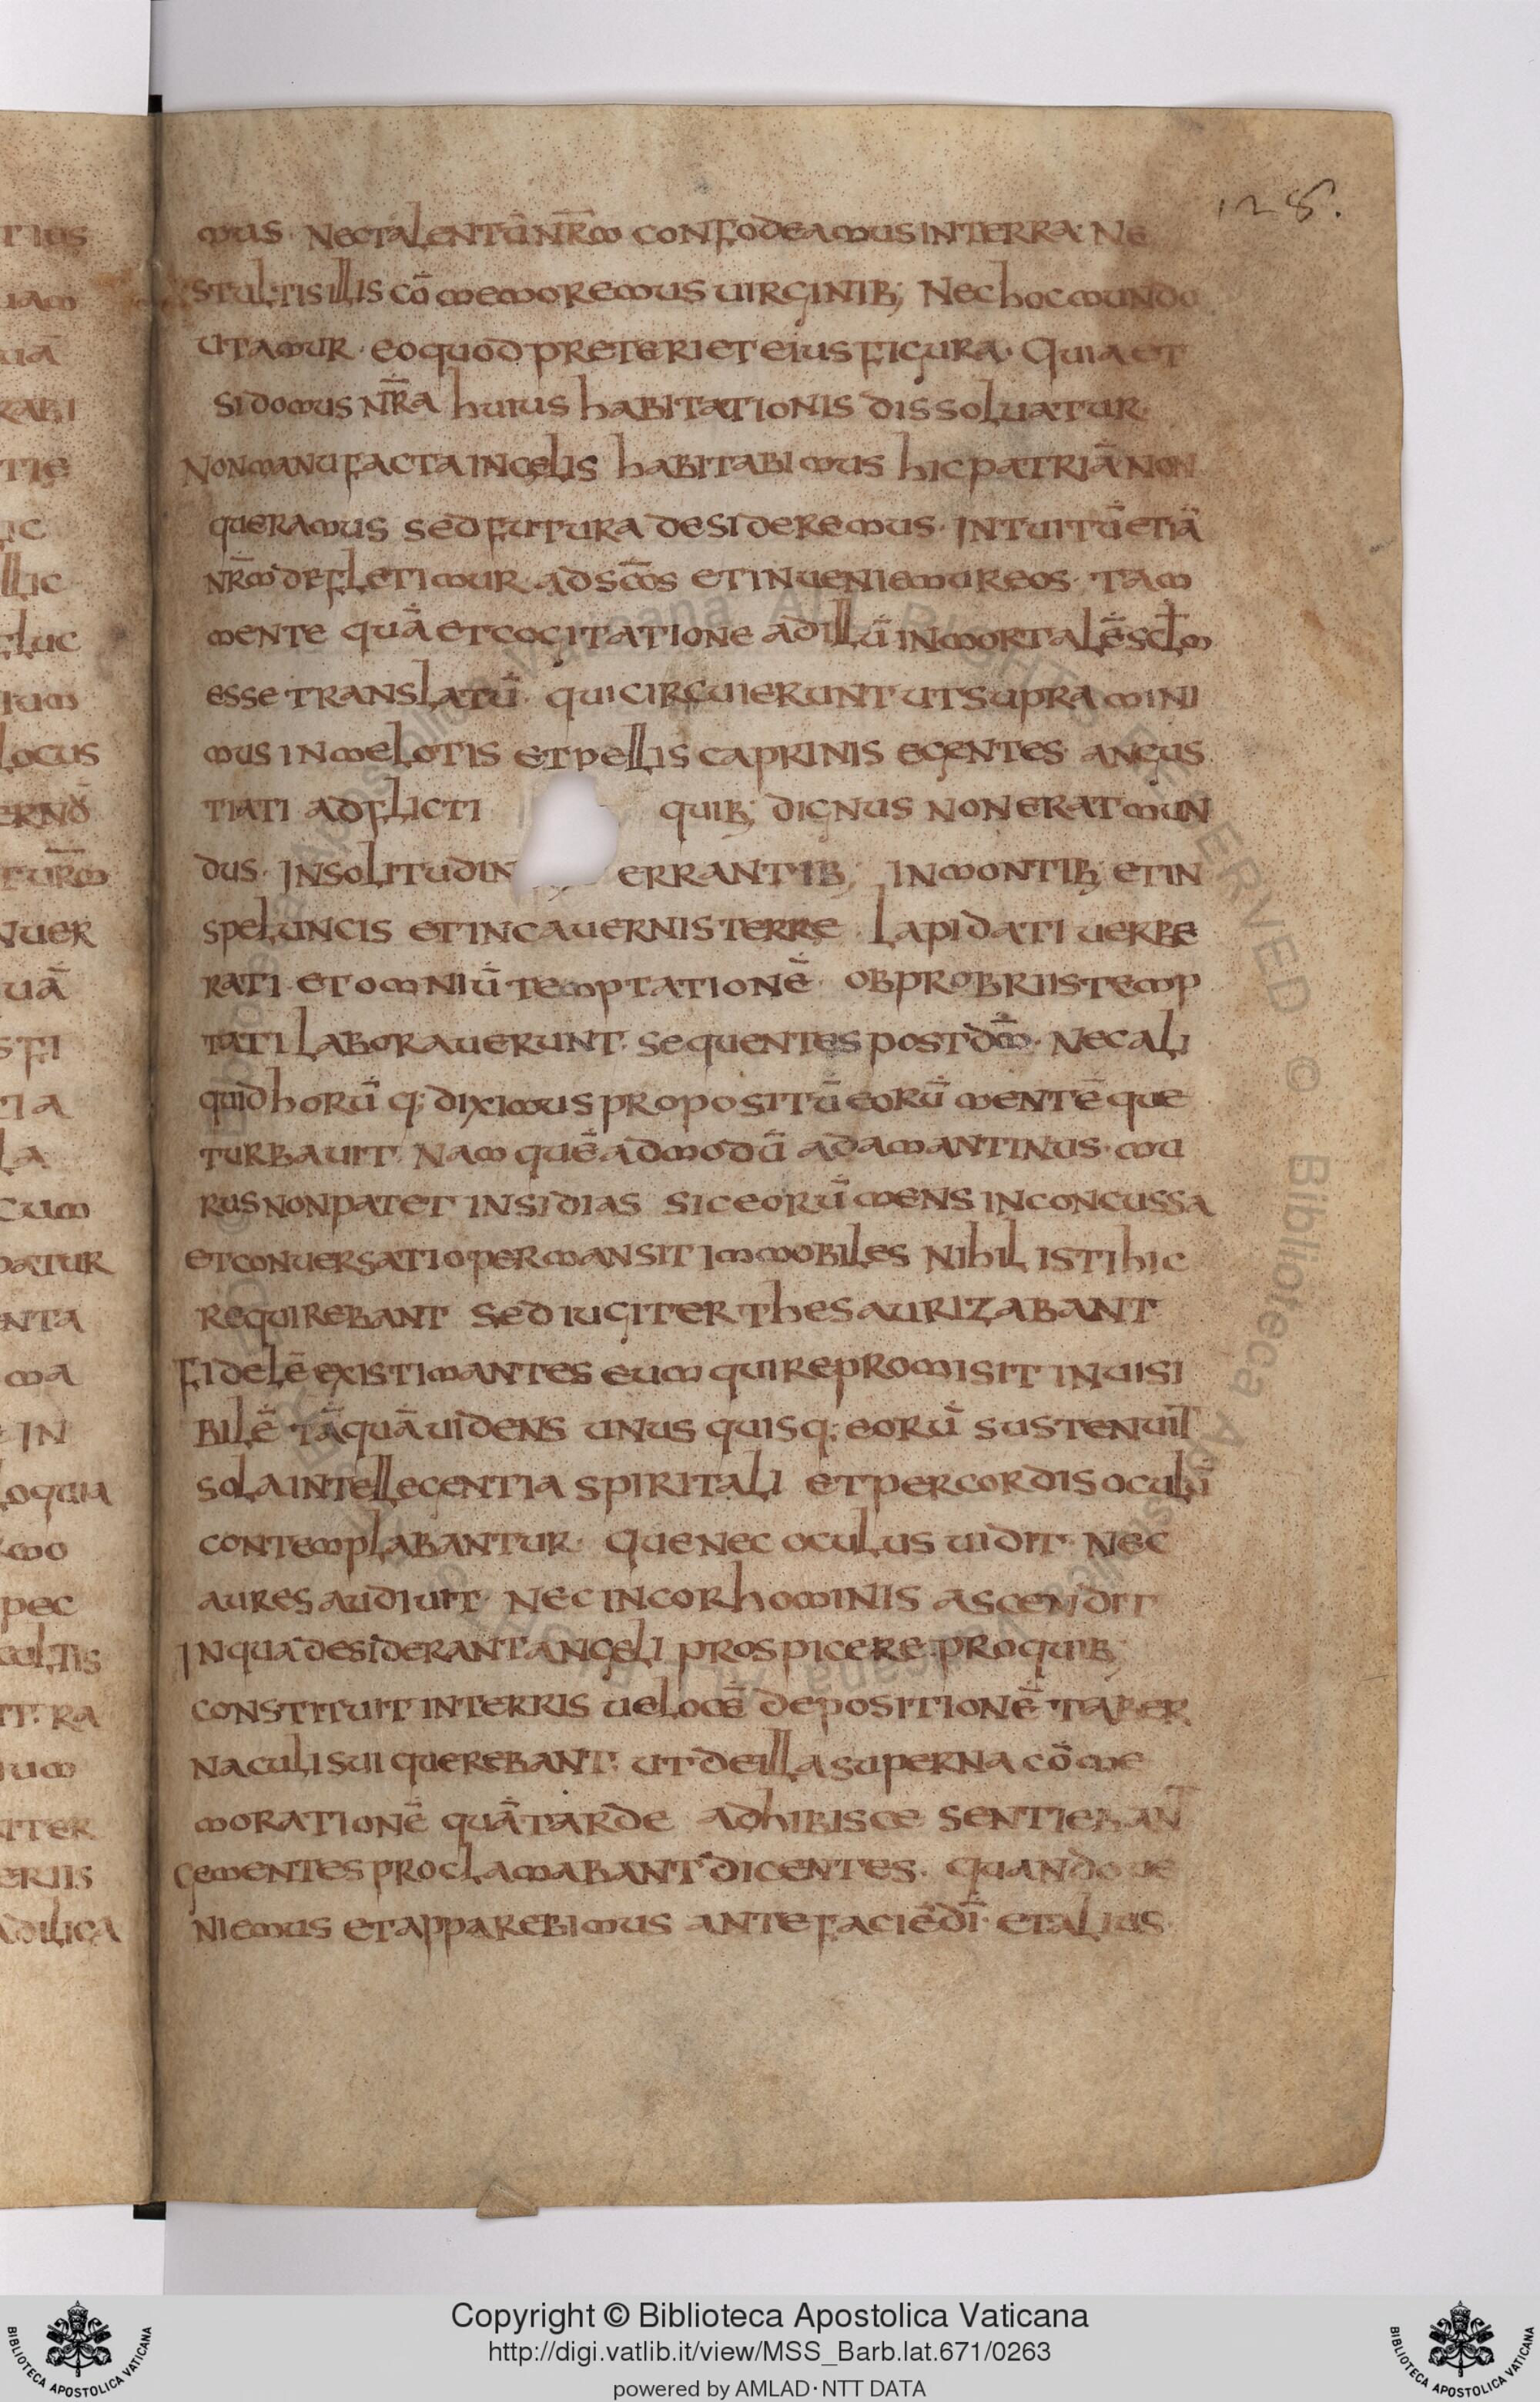 128.
mus · nectalentū nr̄m confodeamus in terra · Ne
stultis illis cōmemoremus uirginib; Nec hoc mundo
utamur · eo quod preteriet eius figura · Quia et
si domus nr̄a huius habitationis dissoluatur ·
Non manu facta in celis habitabimus hic patriā non
queramus sed futura desideremus · intuitū etiā
nr̄m defletimur · ad sc̄os et inueniemur eos · tam
mente quā et cogitatione ad illū inmortalē scl̄m
esse translatū · qui circuierunt ut supra mini
mus in melotis et pellis caprinis egentes · angus
tiati adflicti quib; dignus non erat mun
dus · in solitudin errantib; in montib; et in
speluncis et in cauernis terre lapidati uerbe
rati et omniū temptationē obprobriis temp
tati laborauerunt sequentes post dn̄m · Nec ali
quid horū q; diximus propositū eorū mentē que
turbauit Nam quēadmodū adamantinus · mu
rus non patet insidias sic eorū mens inconcussa
et conuersatio permansit immobiles nihil isti hic
requirebant sed iugiter thesaurizabant
fidelē existimantes eum qui repromisit inuisi
bilē tāquā uidens unus quisq; eorū sustenuit
sola intellegentia spiritali et per cordis oculū
contemplabantur · Que nec oculus uidit · nec
aures audiuit · nec in cor hominis ascendit
in qua desiderant angeli prospicere · pro quib;
constituit in terris uelocē depositionē taber
naculi sui querebant · ut de illa superna cōme
morationē quā tarde adhibisce sentiebant
gementes proclamabant dicentes · Quando ue
niemus et apparebimus ante faciē dī · et alius ·
tius
iam
uā
rabi
tie
lic
llic
fluc
ium
locus
tur̄m
nuer
uā
sti
tia
la
cum
datur
enta
ma
in
loquia
rmo
pec
cultis
it · ra
ium
iter
eriis
adilica
Copyright © Biblioteca Apostolica Vaticana
http://digi.vatlib.it/view/MSS_Barb.lat.671/0263
powered by AMLAD·NTT DATA
BIBLIOTECA APOSTOLICA VATICANA
BIBLIOTECA APOSTOLICA VATICANA